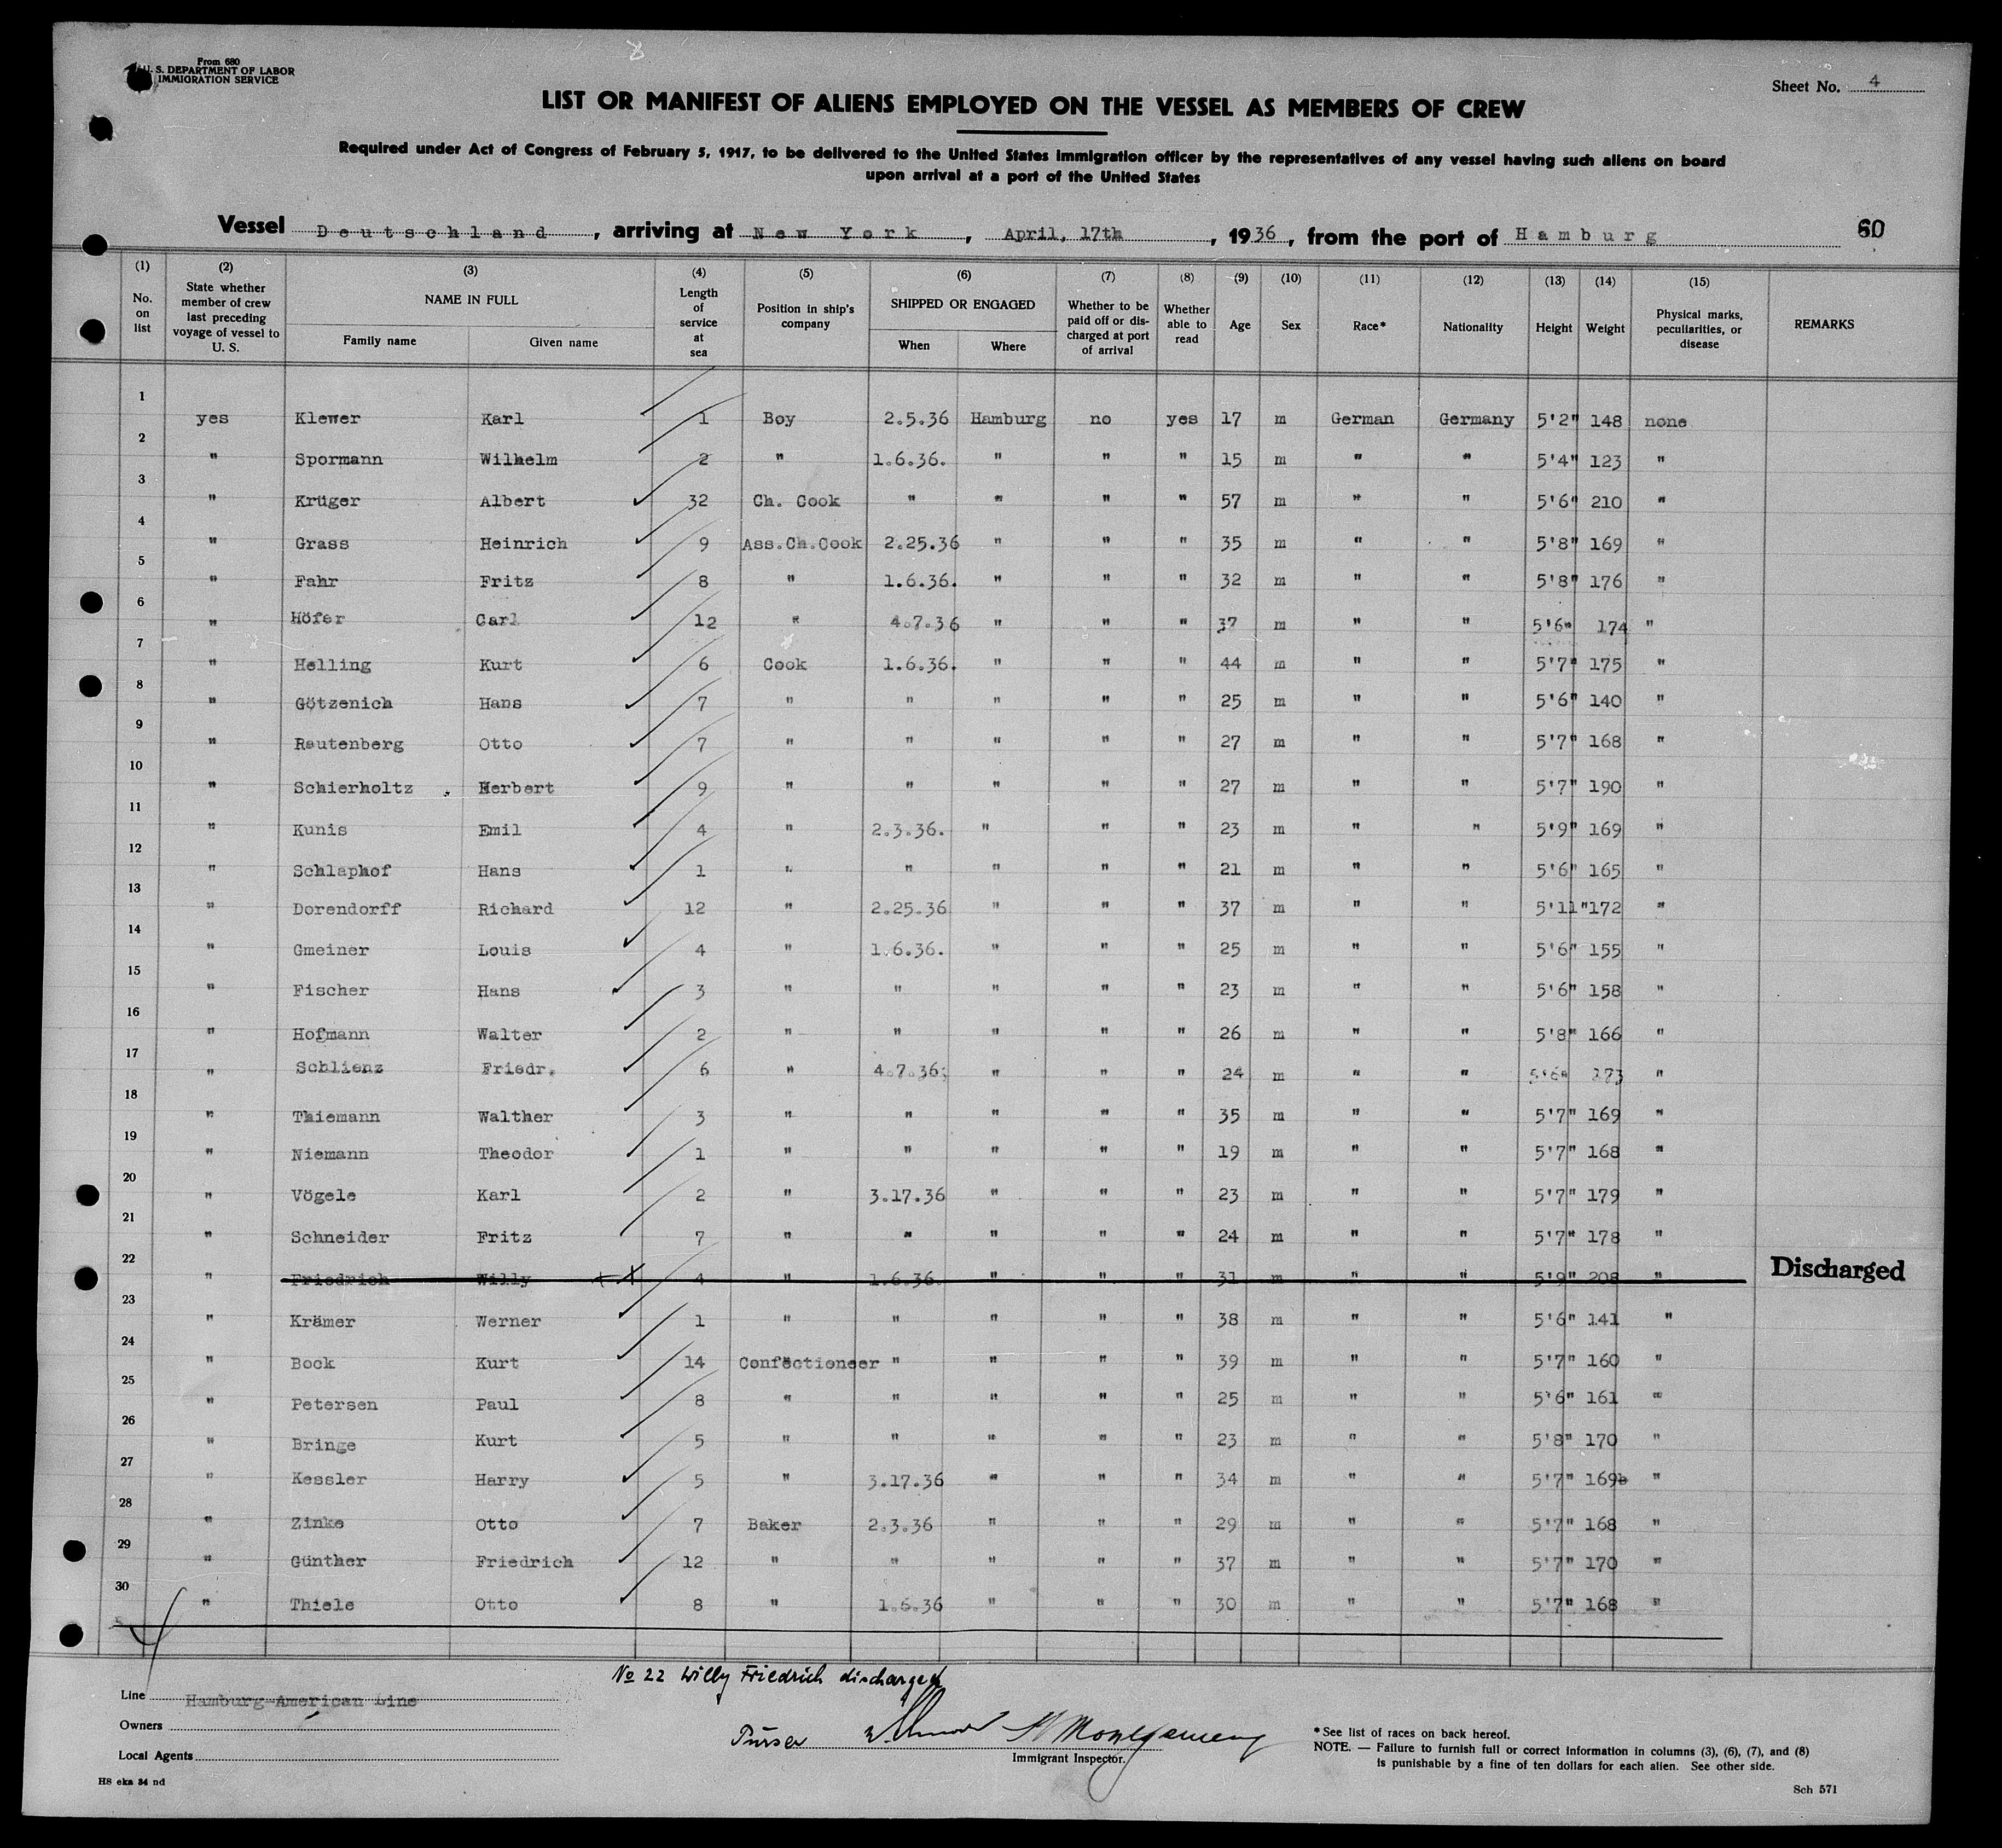 From 680
U. S. DEPARTMENT OF LABOR
IMMIGRATION SERVICE
Sheet No. 4
LIST OR MANIFEST OF ALIENS EMPLOYED ON THE VESSEL AS MEMBERS OF CREW
Required under Act of Congress of February 5, 1917, to be delivered to the United States immigration officer by the representatives of any vessel having such aliens on board
upon arrival at a port of the United States
Vessel Deutschland, arriving at New York, April, 17th, 1936, from the port of Hamburg 60
(1) No. on list (2) State whether member of crew last preceding voyage of vessel to U. S. (3) NAME IN FULL Family name Given name (4) Length of service at sea (5) Position in ship's company (6) SHIPPED OR ENGAGED When Where (7) Whether to be paid off or discharged at port of arrival (8) Whether able to read (9) Age (10) Sex (11) Race* (12) Nationality (13) Height (14) Weight (15) Physical marks, peculiarities, or disease REMARKS
1 yes Klewer Karl 1 Boy 2.5.36 Hamburg no yes 17 m German Germany 5'2" 148 none
2 " Spormann Wilhelm 2 " 1.6.36. " " " 15 m " " 5'4" 123 "
3 " Krüger Albert 32 Ch. Cook " " " " 57 m " " 5'6" 210 "
4 " Grass Heinrich 9 Ass.Ch.Cook 2.25.36 " " " 35 m " " 5'8" 169 "
5 " Fahr Fritz 8 " 1.6.36. " " " 32 m " " 5'8" 176 "
6 " Höfer Carl 12 " 4.7.36 " " " 37 m " " 5'6" 174 "
7 " Helling Kurt 6 Cook 1.6.36. " " " 44 m " " 5'7" 175 "
8 " Götzenich Hans 7 " " " " " 25 m " " 5'6" 140 "
9 " Rautenberg Otto 7 " " " " " 27 m " " 5'7" 168 "
10 " Schierholtz Herbert 9 " " " " " 27 m " " 5'7" 190 "
11 " Kunis Emil 4 " 2.3.36. " " " 23 m " " 5'9" 169 "
12 " Schlaphof Hans 1 " " " " " 21 m " " 5'6" 165 "
13 " Dorendorff Richard 12 " 2.25.36 " " " 37 m " " 5'11" 172 "
14 " Gmeiner Louis 4 " 1.6.36. " " " 25 m " " 5'6" 155 "
15 " Fischer Hans 3 " " " " " 23 m " " 5'6" 158 "
16 " Hofmann Walter 2 " " " " " 26 m " " 5'8" 166 "
17 " Schlienz Friedr. 6 " 4.7.36. " " " 24 m " " 5'6" 173 "
18 " Thiemann Walther 3 " " " " " 35 m " " 5'7" 169 "
19 " Niemann Theodor 1 " " " " " 19 m " " 5'7" 168 "
20 " Vögele Karl 2 " 3.17.36 " " " 23 m " " 5'7" 179 "
21 " Schneider Fritz 7 " " " " " 24 m " " 5'7" 178 "
22 " Friedrich Willy 4 " 1.6.36. " " " 31 m " " 5'9" 208 " Discharged
23 " Krämer Werner 1 " " " " " 38 m " " 5'6" 141 "
24 " Bock Kurt 14 Confectioneer " " " " 39 m " " 5'7" 160 "
25 " Petersen Paul 8 " " " " " 25 m " " 5'6" 161 "
26 " Bringe Kurt 5 " " " " " 23 m " " 5'8" 170 "
27 " Kessler Harry 5 " 3.17.36 " " " 34 m " " 5'7" 169 "
28 " Zinke Otto 7 Baker 2.3.36 " " " 29 m " " 5'7" 168 "
29 " Günther Friedrich 12 " " " " " 37 m " " 5'7" 170 "
30 " Thiele Otto 8 " 1.6.36 " " " 30 m " " 5'7" 168 "
No 22 Willy Friedrich discharged
Line Hamburg-American Line
Owners
Local Agents
Purser Montgomery
Immigrant Inspector.
*See list of races on back hereof.
NOTE. — Failure to furnish full or correct information in columns (3), (6), (7), and (8)
is punishable by a fine of ten dollars for each alien. See other side.
H8 eka 34 nd
Sch 571